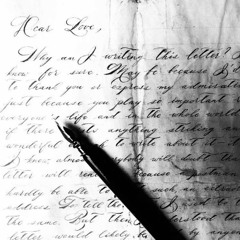 Dear Love,
Why am I writing this letter? I
know for sure. May be because I'd
to thank you or express my admiration
just because you play so important
everyone's life and in the whole world
if there is anything striking and
wonderful to write about it. I
know almost everybody will doubt that
letter will reach because
hardly be able to such, an
address. To tell the I used to
the same. But then I understood that
letter would likely